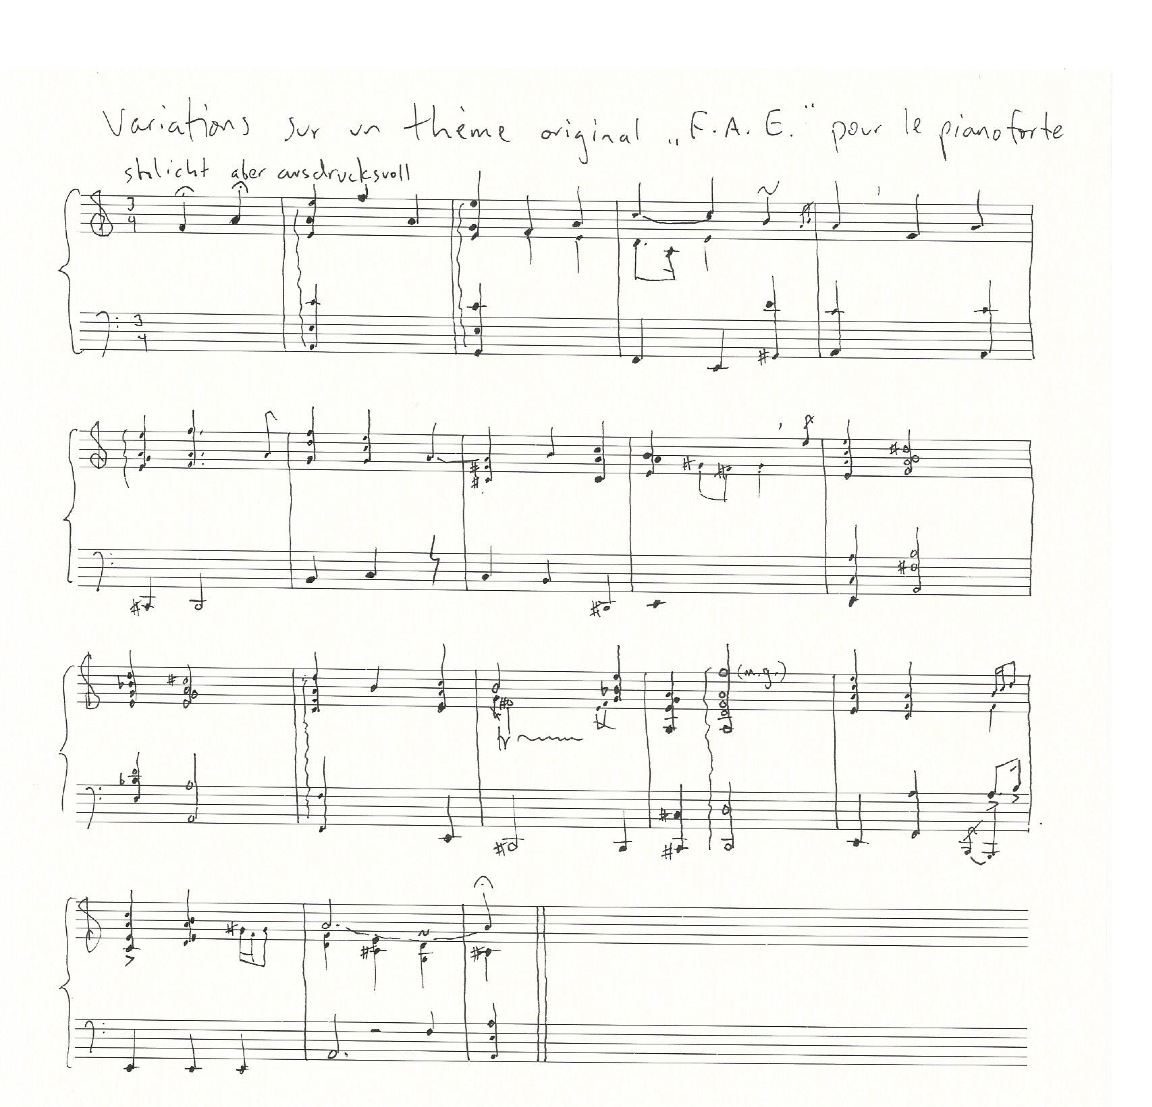 Variations sur un thème original „F.A.E.“ pour le pianoforte
schlicht aber ausdrucksvoll
3
4
3
4
(m.g.)